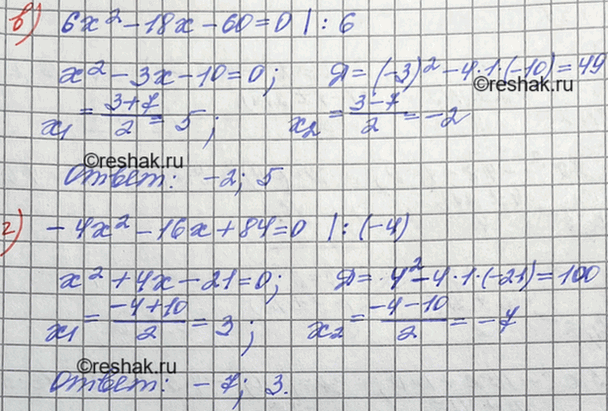 в) 6x² - 18x - 60 = 0 | : 6
x² - 3x - 10 = 0; Д = (-3)² - 4·1·(-10) = 49
©reshak.ru
x₁ = (3+7)/2 = 5; x₂ = (3-7)/2 = -2
©reshak.ru
Ответ: -2; 5
г) -4x² - 16x + 84 = 0 | : (-4)
x² + 4x - 21 = 0; Д = 4² - 4·1·(-21) = 100
x₁ = (-4+10)/2 = 3; x₂ = (-4-10)/2 = -7
©reshak.ru
Ответ: -7; 3.